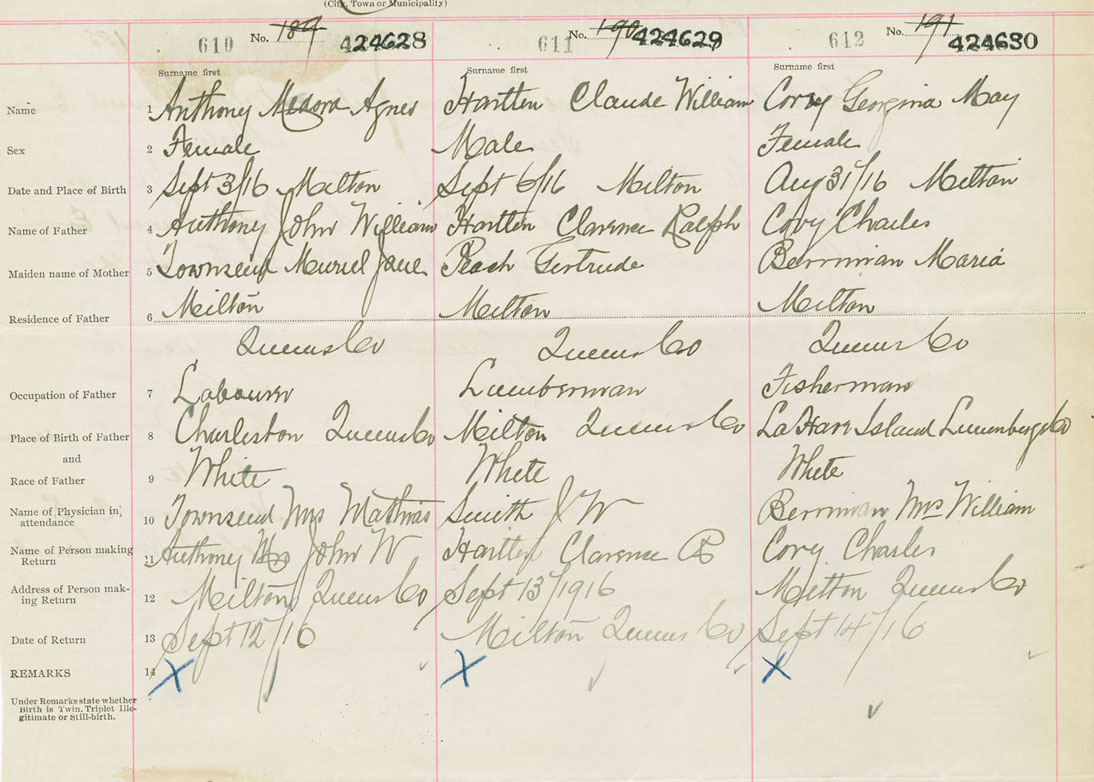 (City, Town or Municipality)
610 No. 189 424628 611 No. 190 424629 612 No. 191 424630
Surname first Surname first Surname first
Name 1 Anthony Medora Agnes Hartten Claude William Cory Georgina May
Sex 2 Female Male Female
Date and Place of Birth 3 Sept 3/16 Milton Sept 6/16 Milton Aug 31/16 Milton
Name of Father 4 Anthony John William Hartten Clarence Ralph Cory Charles
Maiden name of Mother 5 Townsend Muriel Jane Peach Gertrude Berriman Maria
Residence of Father 6 Milton Milton Milton
Queens Co Queens Co Queens Co
Occupation of Father 7 Labourer Lumberman Fisherman
Place of Birth of Father 8 Charleston Queens Co Milton Queens Co LaHave Island Lunenburg Co
and
Race of Father 9 White White White
Name of Physician in attendance 10 Townsend Mrs Mathias Smith J W Berriman Mrs William
Name of Person making Return 11 Anthony John W Hartten Clarence R Cory Charles
Address of Person making Return 12 Milton Queens Co Sept 13/1916 Milton Queens Co
Date of Return 13 Sept 12/16 Milton Queens Co Sept 14/16
REMARKS 14 X X X
Under Remarks state whether
Birth is Twin, Triplet Ille-
gitimate or Still-birth.